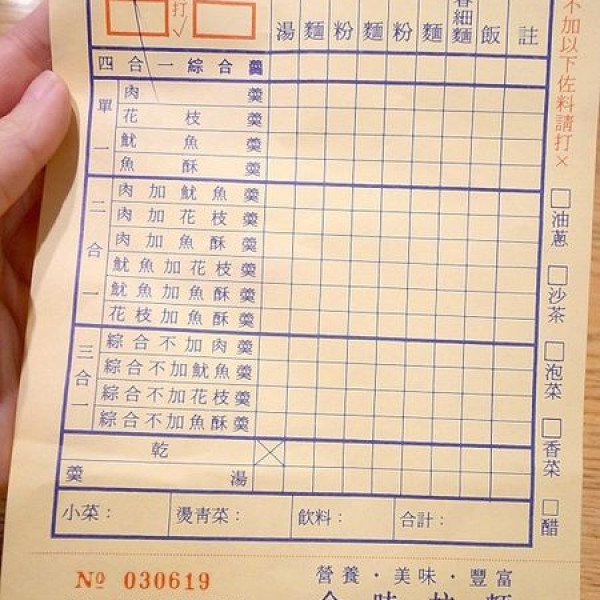 打✓
湯 麵 粉 麵 粉 麵 細麵 飯 註
不加以下佐料請打×
四合一綜合羹
單一
肉羹
花枝羹
魷魚羹
魚酥羹
二合一
肉加魷魚羹
肉加花枝羹
肉加魚酥羹
魷魚加花枝羹
魷魚加魚酥羹
花枝加魚酥羹
三合一
綜合不加肉羹
綜合不加魷魚羹
綜合不加花枝羹
綜合不加魚酥羹
乾
羹湯
小菜: 燙靑菜: 飲料: 合計:
□油蔥
□沙茶
□泡菜
□香菜
□醋
Nº 030619
營養・美味・豐富